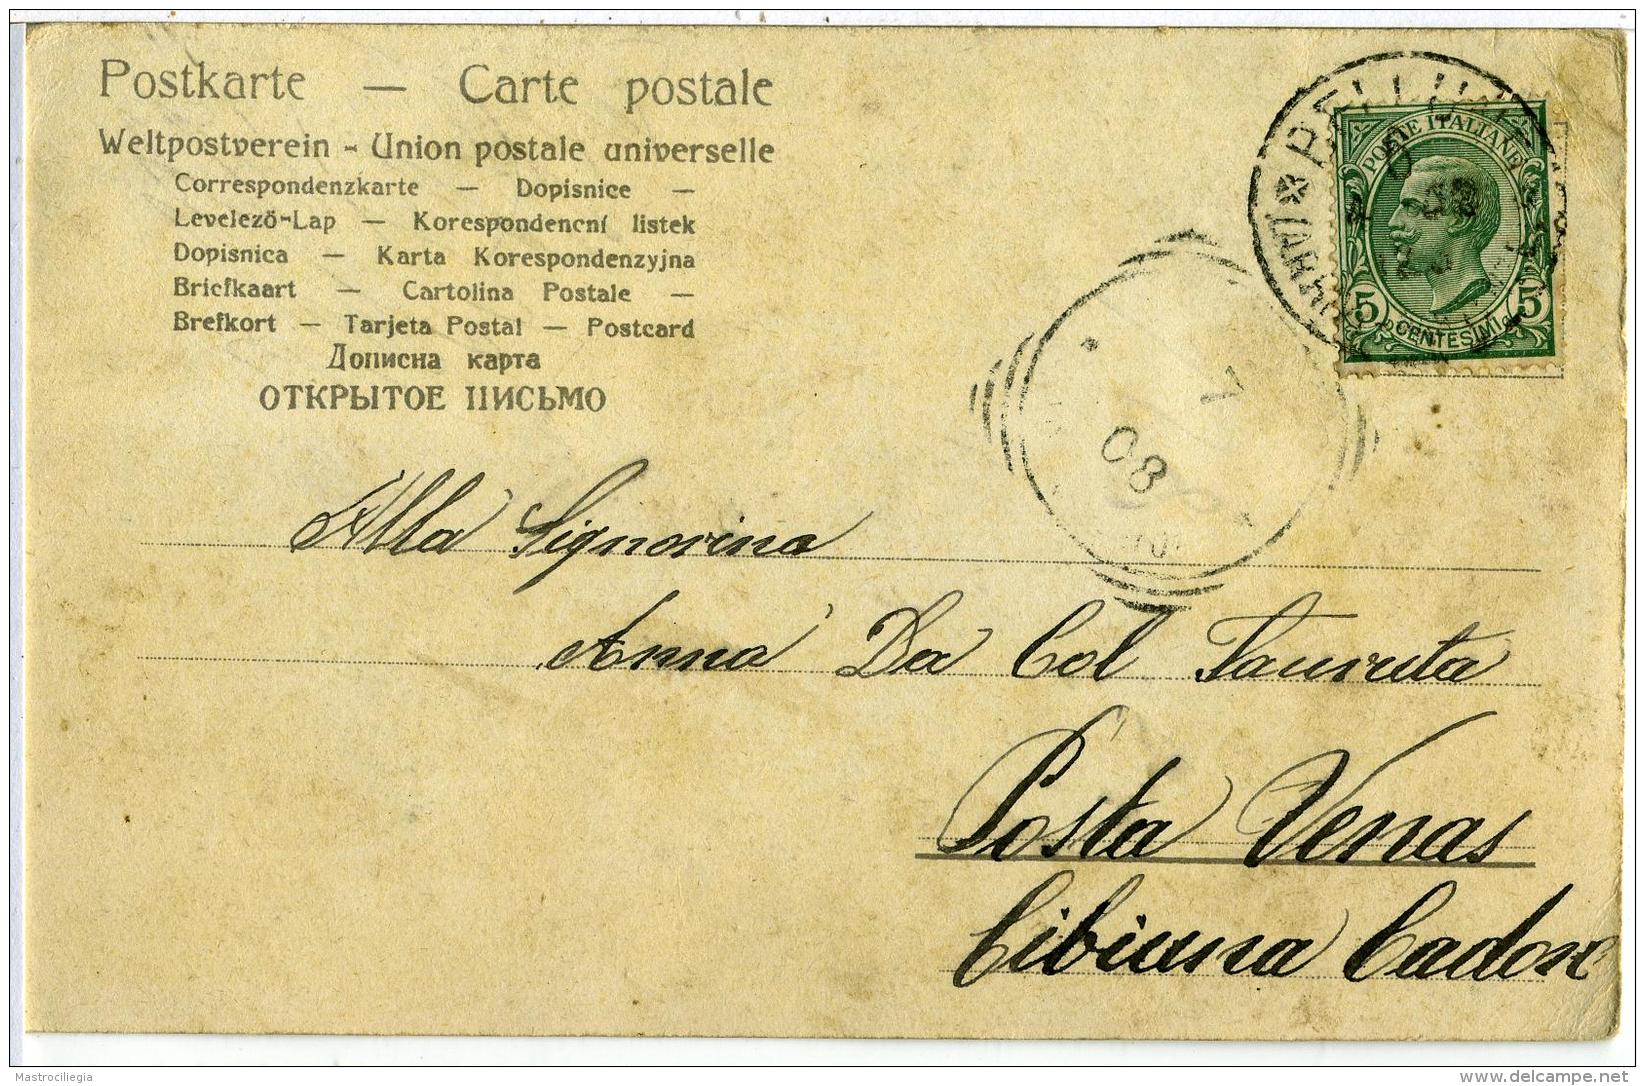 Postkarte — Carte postale
Weltpostverein - Union postale universelle
Correspondenzkarte — Dopisnice —
Levelező-Lap — Korespondencní listek
Dopisnica — Karta Korespondenzyjna
Briefkaart — Cartolina Postale —
Brefkort — Tarjeta Postal — Postcard
Дописна карта
ОТКРЫТОЕ ПИСЬМО
POSTE ITALIANE
5 CENTESIMI 5
08
Alla Signorina
Anna Da Col
Posta Venas
Cibiana Cadore
Mastrociliegia
delcampe.net